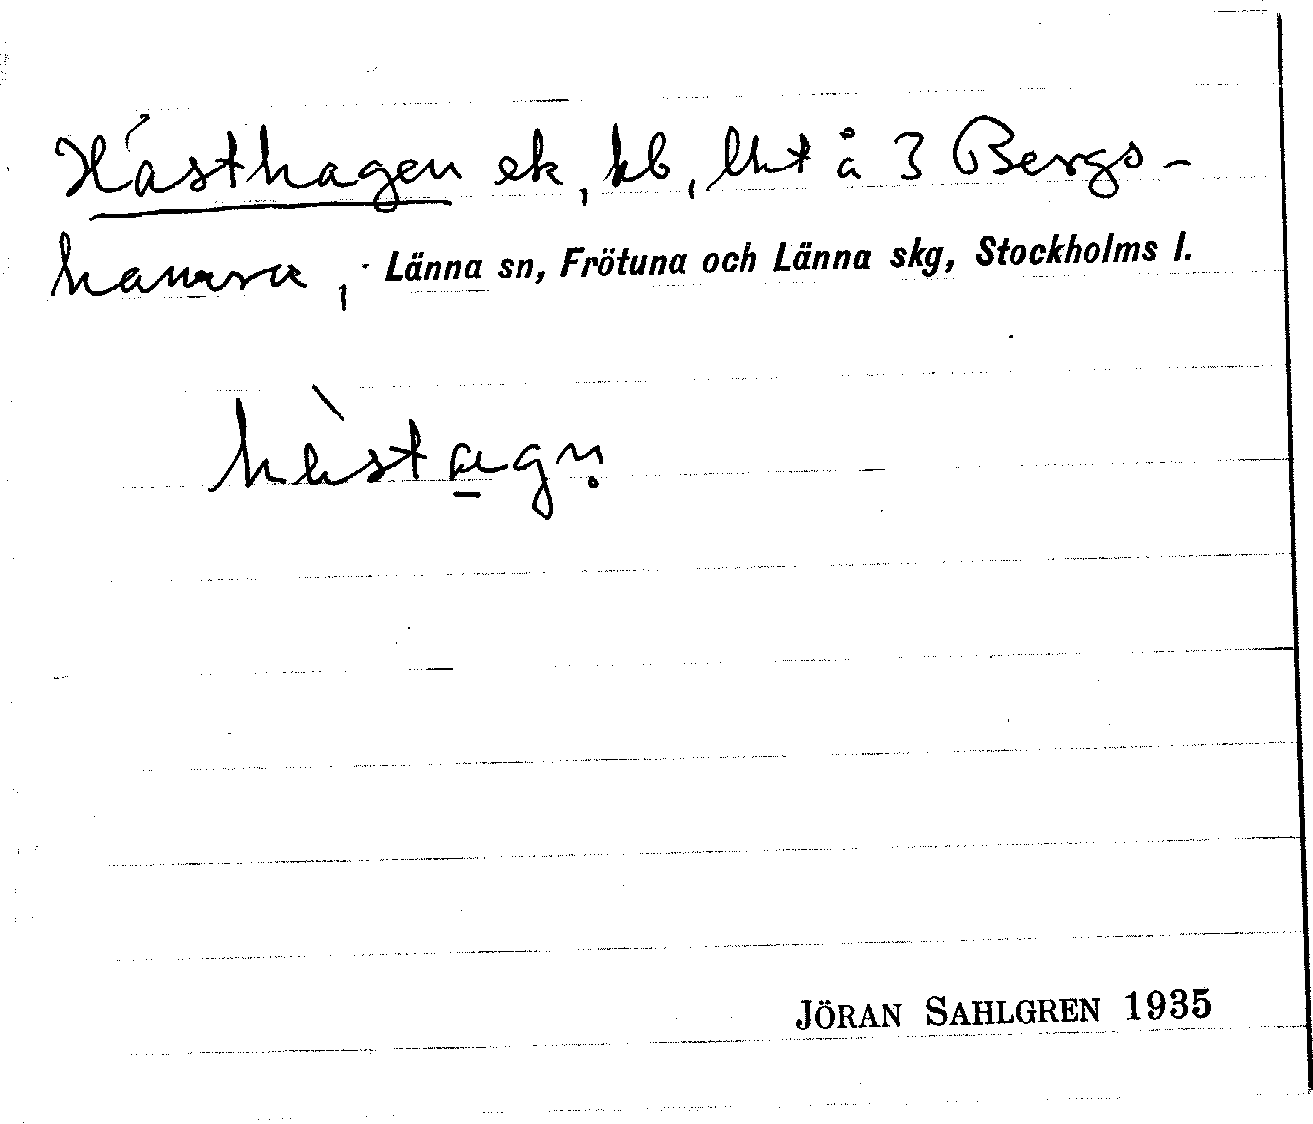 Hästhagen ek, kb, lht å 3 Bergs-
hamra, Länna sn, Frötuna och Länna skg, Stockholms l.
hèstagn̥
JÖRAN SAHLGREN 1935